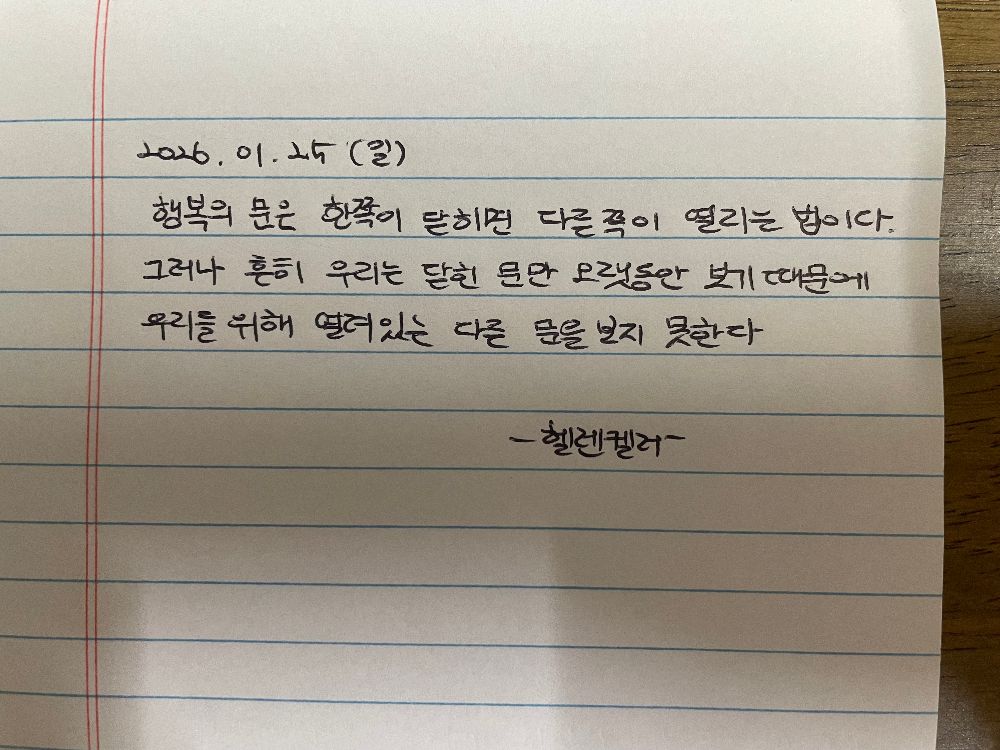 2026. 01. 25 (일)
행복의 문은 한쪽이 닫히면 다른쪽이 열리는 법이다.
그러나 흔히 우리는 닫힌 문만 오랫동안 보기 때문에
우리를 위해 열려있는 다른 문을 보지 못한다
-헬렌켈러-